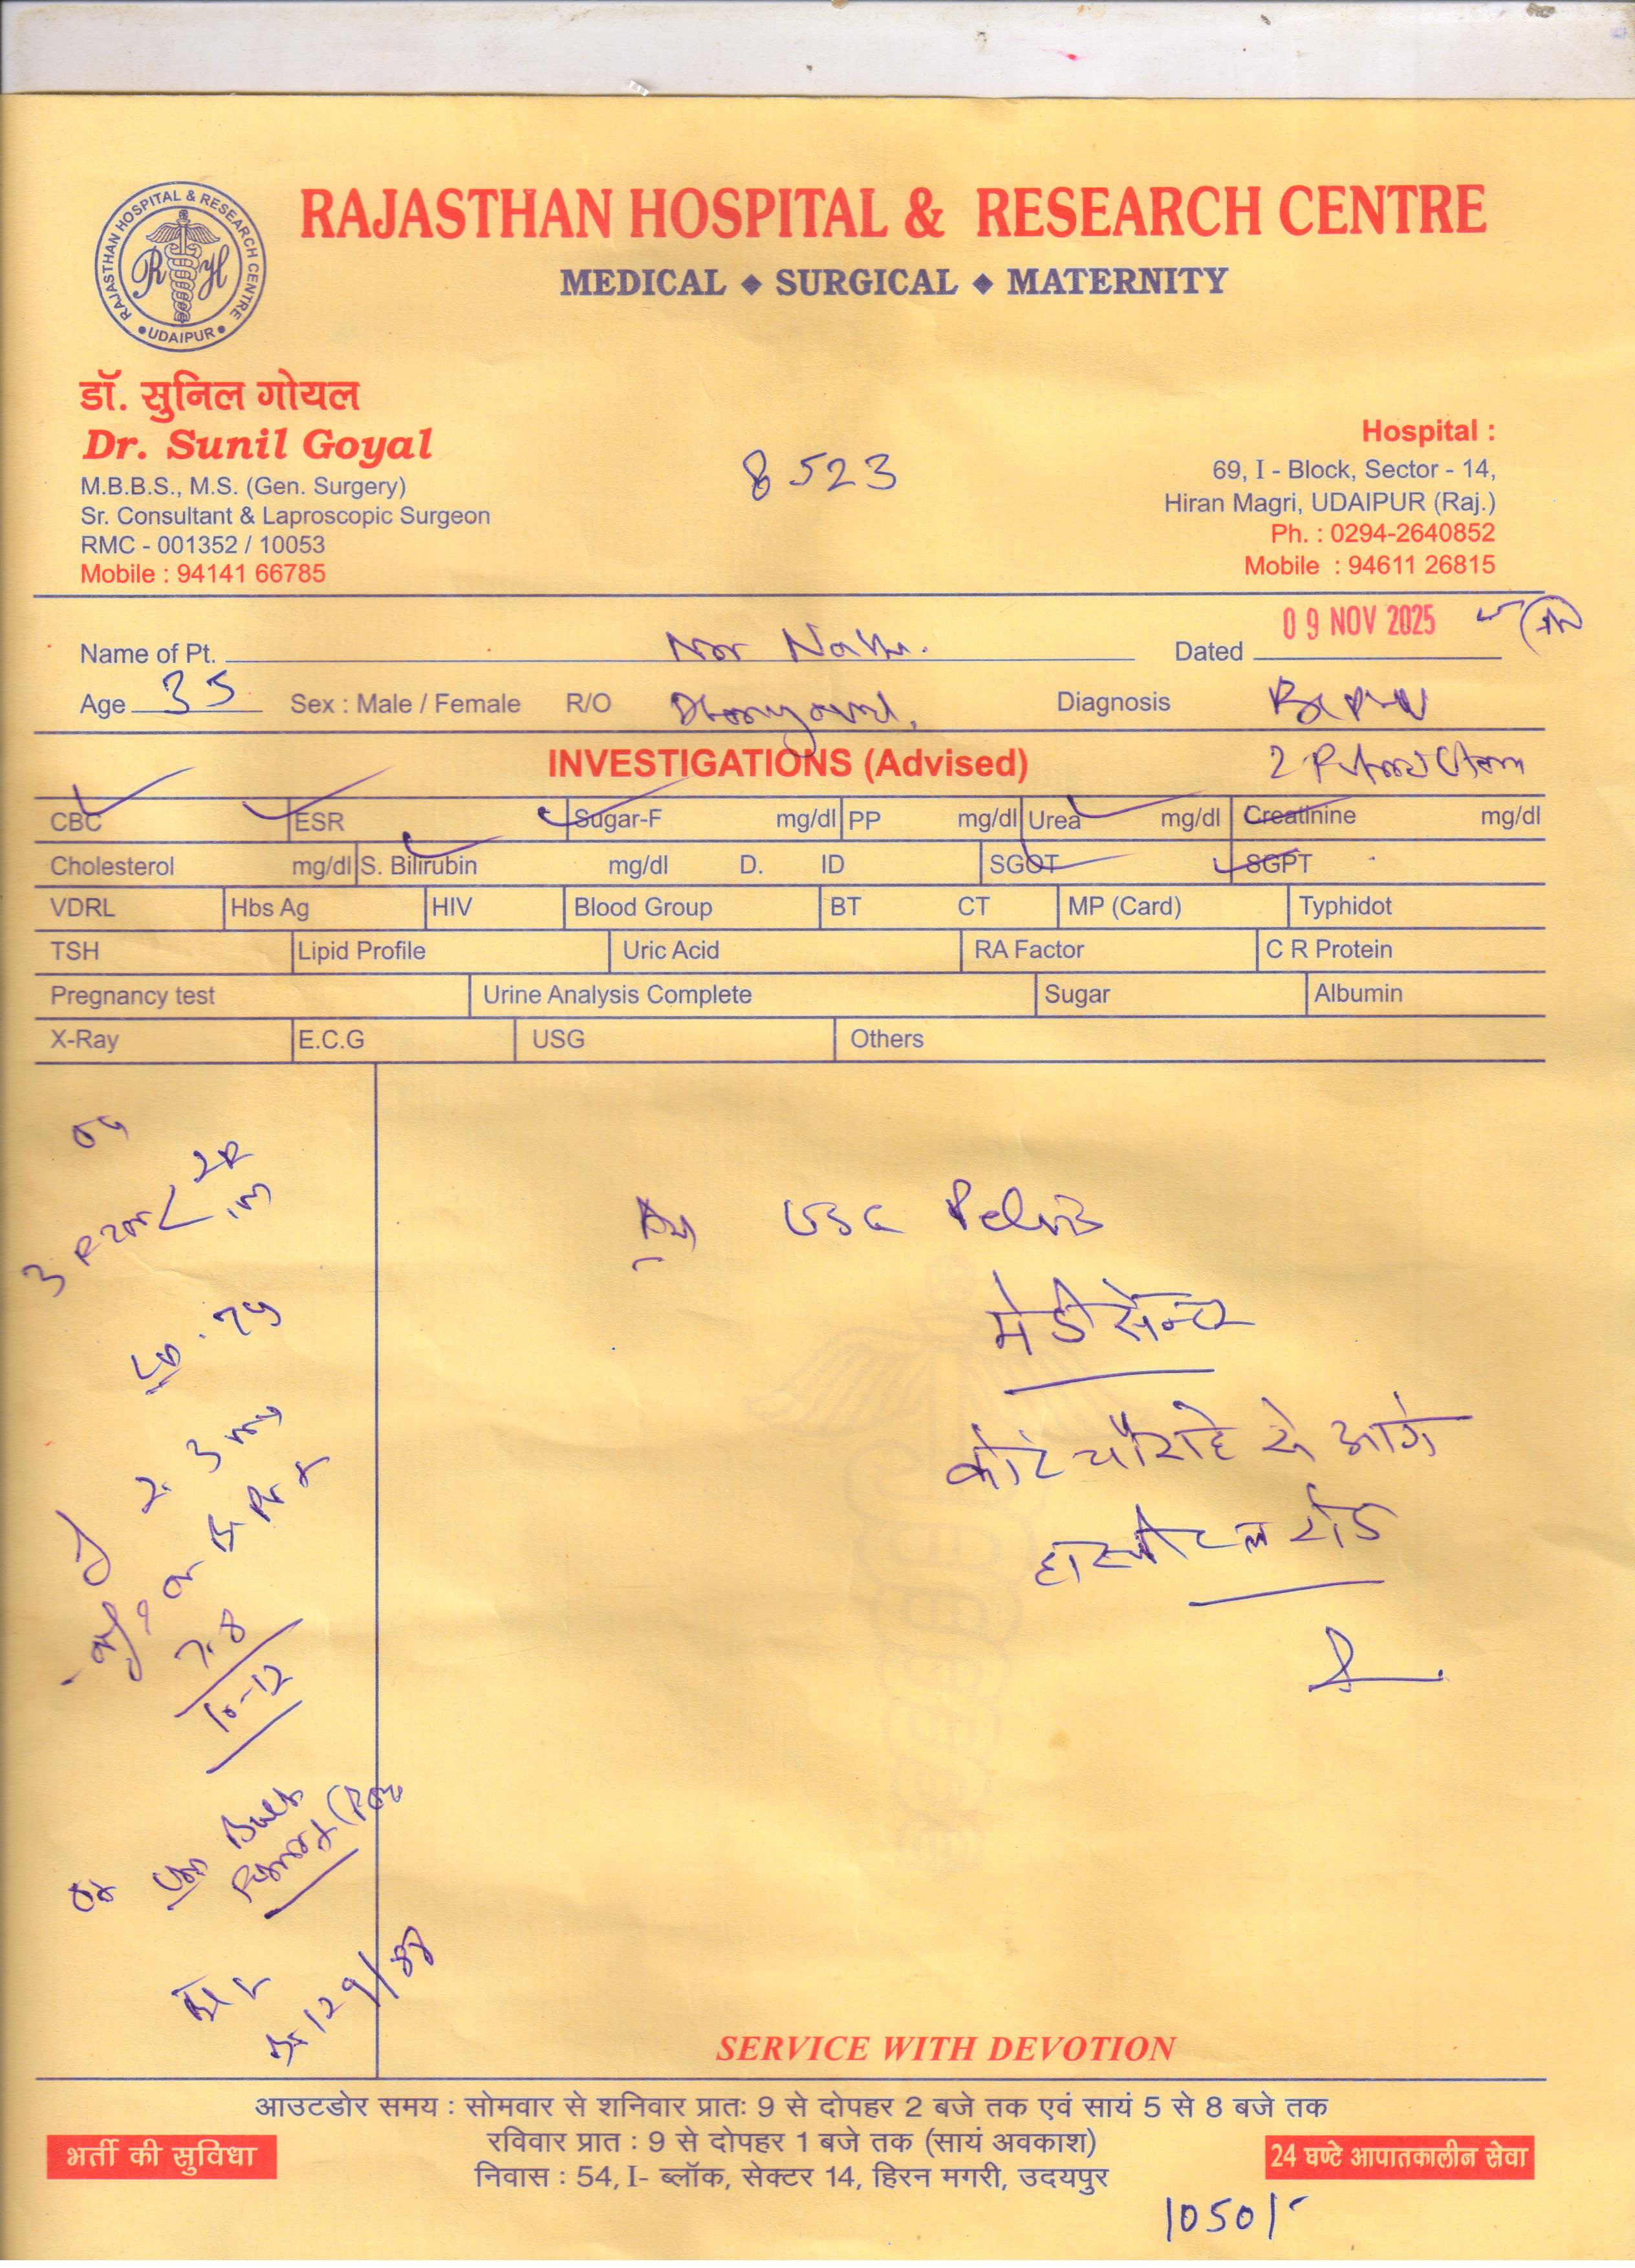 RAJASTHAN HOSPITAL & RESEARCH CENTRE
RAJASTHAN HOSPITAL & RESEARCH CENTRE
• UDAIPUR •
MEDICAL ◆ SURGICAL ◆ MATERNITY
डॉ. सुनिल गोयल
Dr. Sunil Goyal
M.B.B.S., M.S. (Gen. Surgery)
Sr. Consultant & Laproscopic Surgeon
RMC - 001352 / 10053
Mobile : 94141 66785
8523
Hospital :
69, I - Block, Sector - 14,
Hiran Magri, UDAIPUR (Raj.)
Ph. : 0294-2640852
Mobile : 94611 26815
Name of Pt. Dated 09 NOV 2025
Age 35 Sex : Male / Female R/O Diagnosis
INVESTIGATIONS (Advised)
CBC ESR Sugar-F mg/dl PP mg/dl Urea mg/dl Creatinine mg/dl
Cholesterol mg/dl S. Bilirubin mg/dl D. ID SGOT SGPT
VDRL Hbs Ag HIV Blood Group BT CT MP (Card) Typhidot
TSH Lipid Profile Uric Acid RA Factor C R Protein
Pregnancy test Urine Analysis Complete Sugar Albumin
X-Ray E.C.G USG Others
USG Pelvis
मेडीसेन्टर
कोर्ट चौराहे से आगे
हास्पीटल रोड
10-12
129/88
SERVICE WITH DEVOTION
आउटडोर समय : सोमवार से शनिवार प्रातः 9 से दोपहर 2 बजे तक एवं सायं 5 से 8 बजे तक
रविवार प्रात : 9 से दोपहर 1 बजे तक (सायं अवकाश)
निवास : 54, I- ब्लॉक, सेक्टर 14, हिरन मगरी, उदयपुर
भर्ती की सुविधा
24 घण्टे आपातकालीन सेवा
1050/-